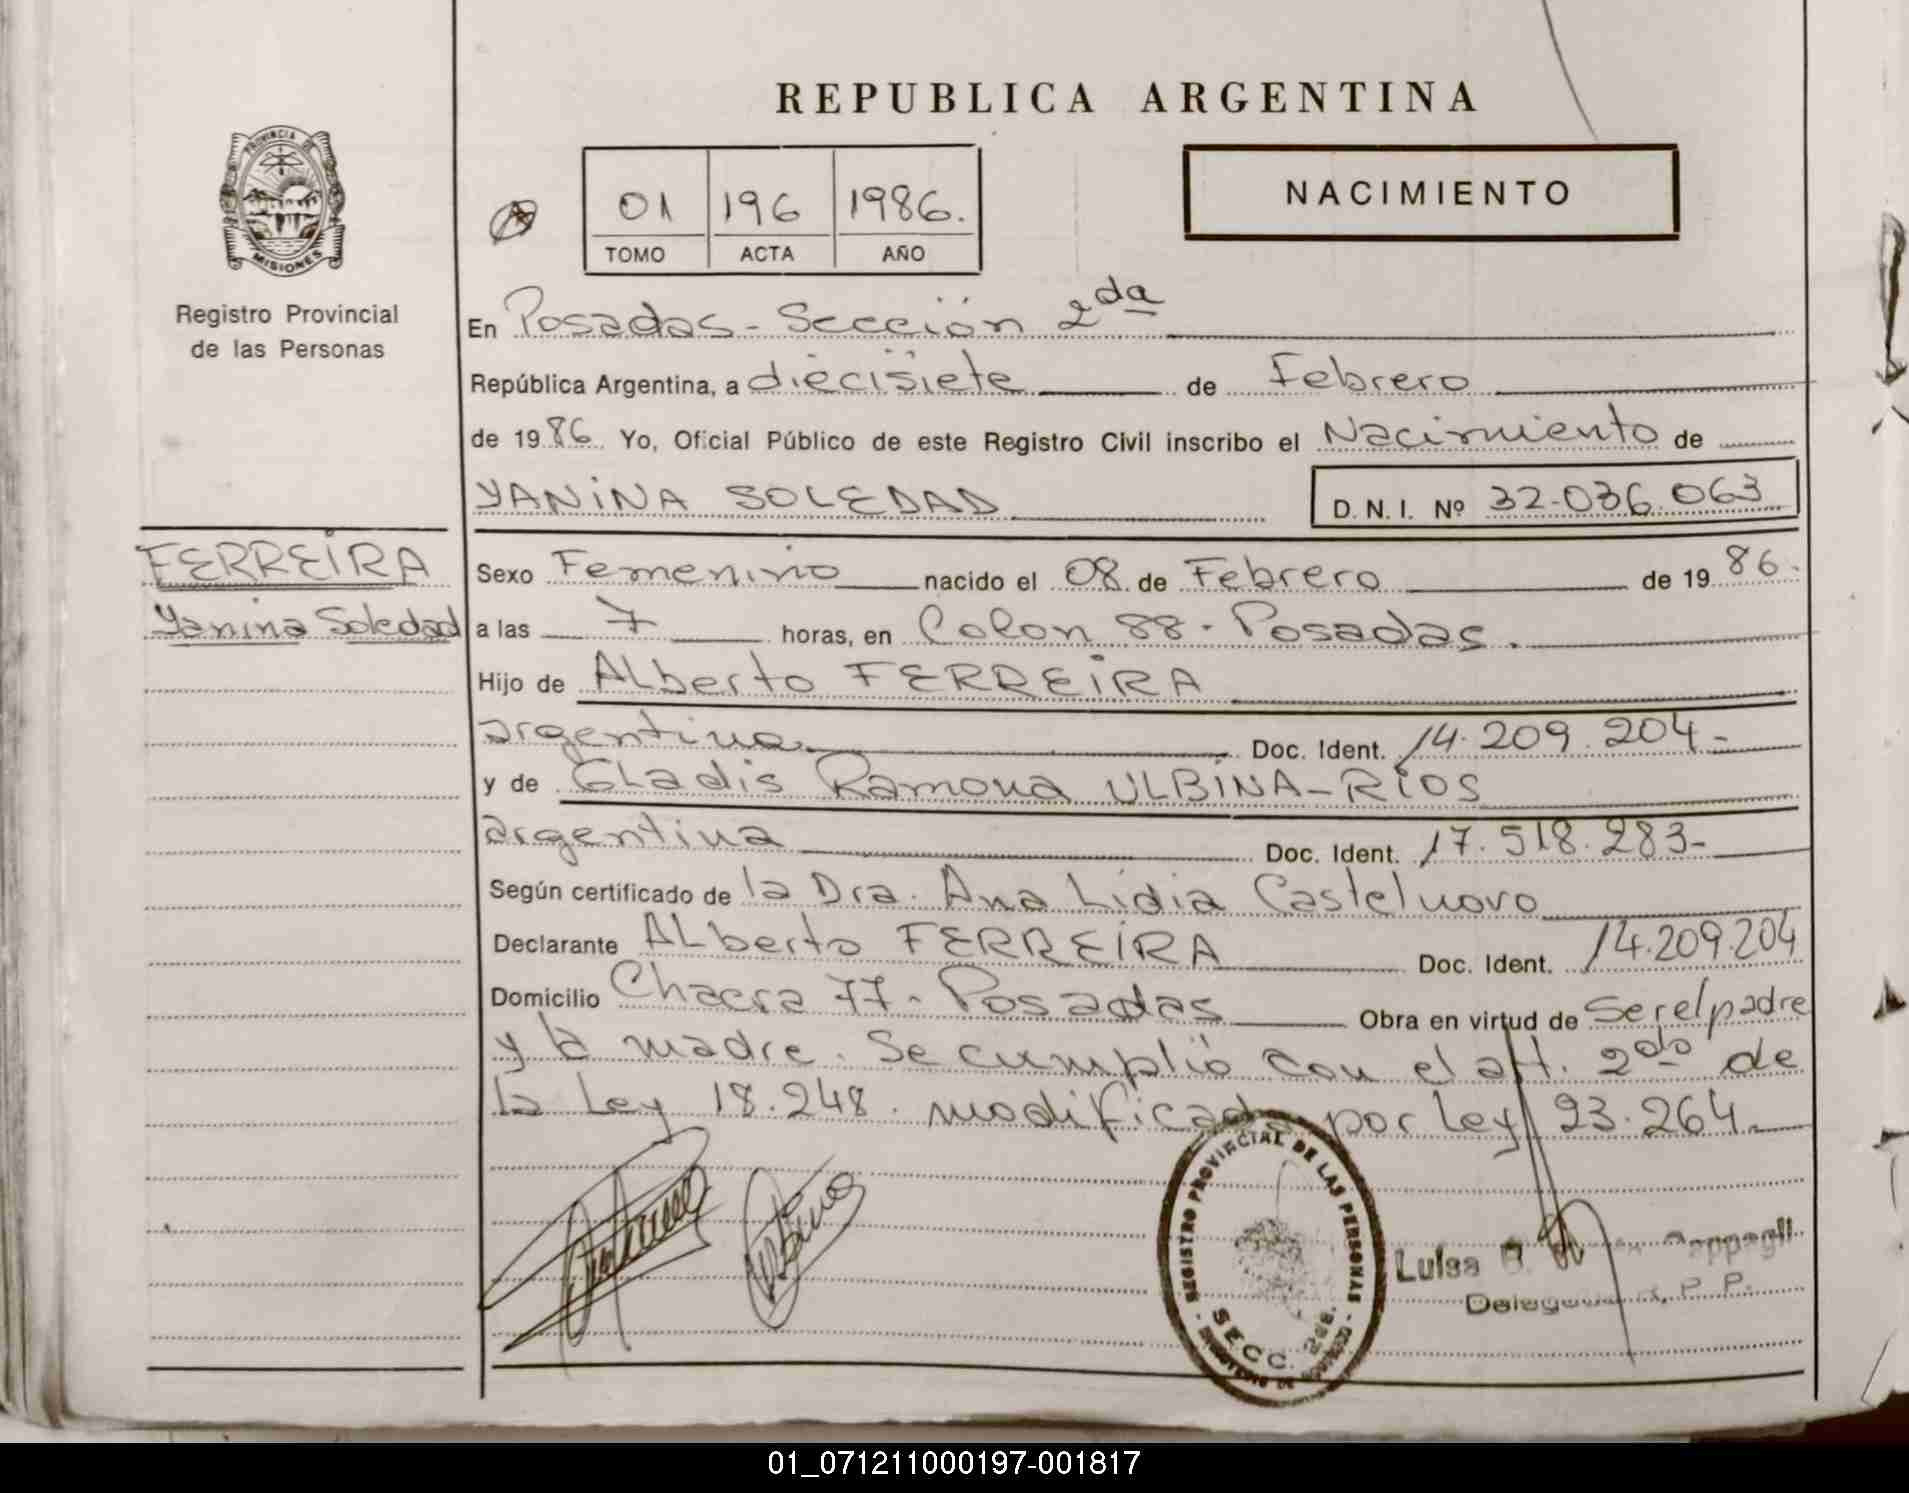 REPUBLICA ARGENTINA
PROVINCIA DE MISIONES
Registro Provincial
de las Personas
01 196 1986.
TOMO ACTA AÑO
NACIMIENTO
En Posadas - Sección 2da
República Argentina, a diecisiete de Febrero
de 1986. Yo, Oficial Público de este Registro Civil inscribo el Nacimiento de
YANINA SOLEDAD D.N.I. Nº 32.036.063
FERREIRA
Yanina Soledad
Sexo Femenino nacido el 08 de Febrero de 1986.
a las 7 horas, en Colon 88 - Posadas.
Hijo de Alberto FERREIRA
argentino Doc. Ident. 14.209.204-
y de Gladis Ramona ULBINA-RIOS
argentina Doc. Ident. 17.518.283-
Según certificado de la Dra. Ana Lidia Castelnovo
Declarante Alberto FERREIRA Doc. Ident. 14.209.204
Domicilio Chacra 77 - Posadas Obra en virtud de Ser el padre
y la madre. Se cumplió con el art. 2do de
la Ley 18.248 modificada por Ley 23.264.
REGISTRO PROVINCIAL DE LAS PERSONAS
SECC. 2da.
Luisa
01_071211000197-001817